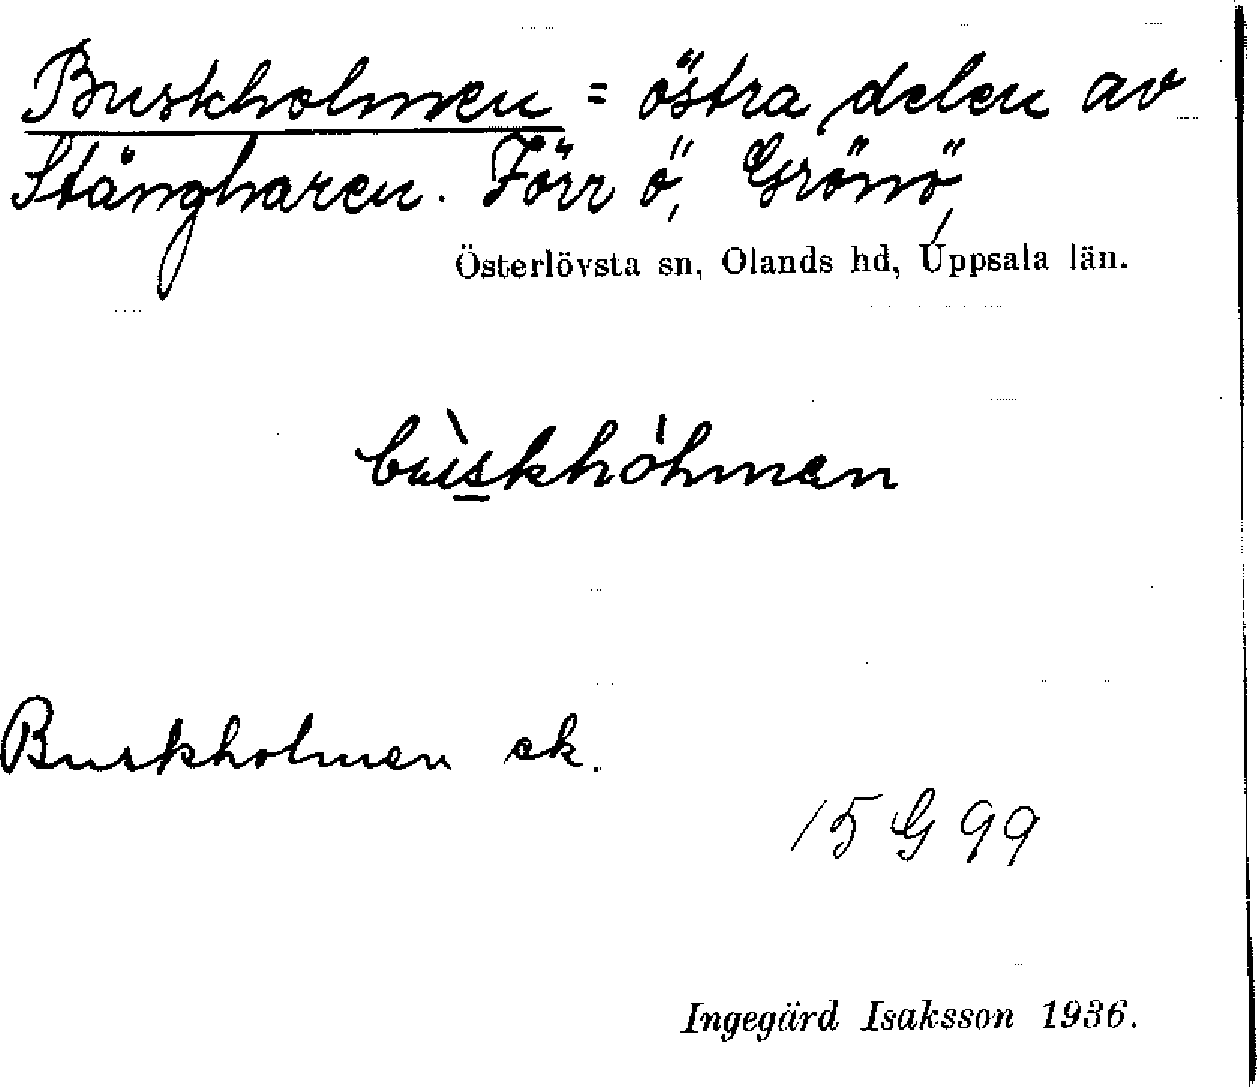 Buskholmen = östra delen av
Stångharen. Förr ö, Grönö,
Österlövsta sn, Olands hd, Uppsala län.
Buskholmen ek.
15 G 99
Ingegärd Isaksson 1936.